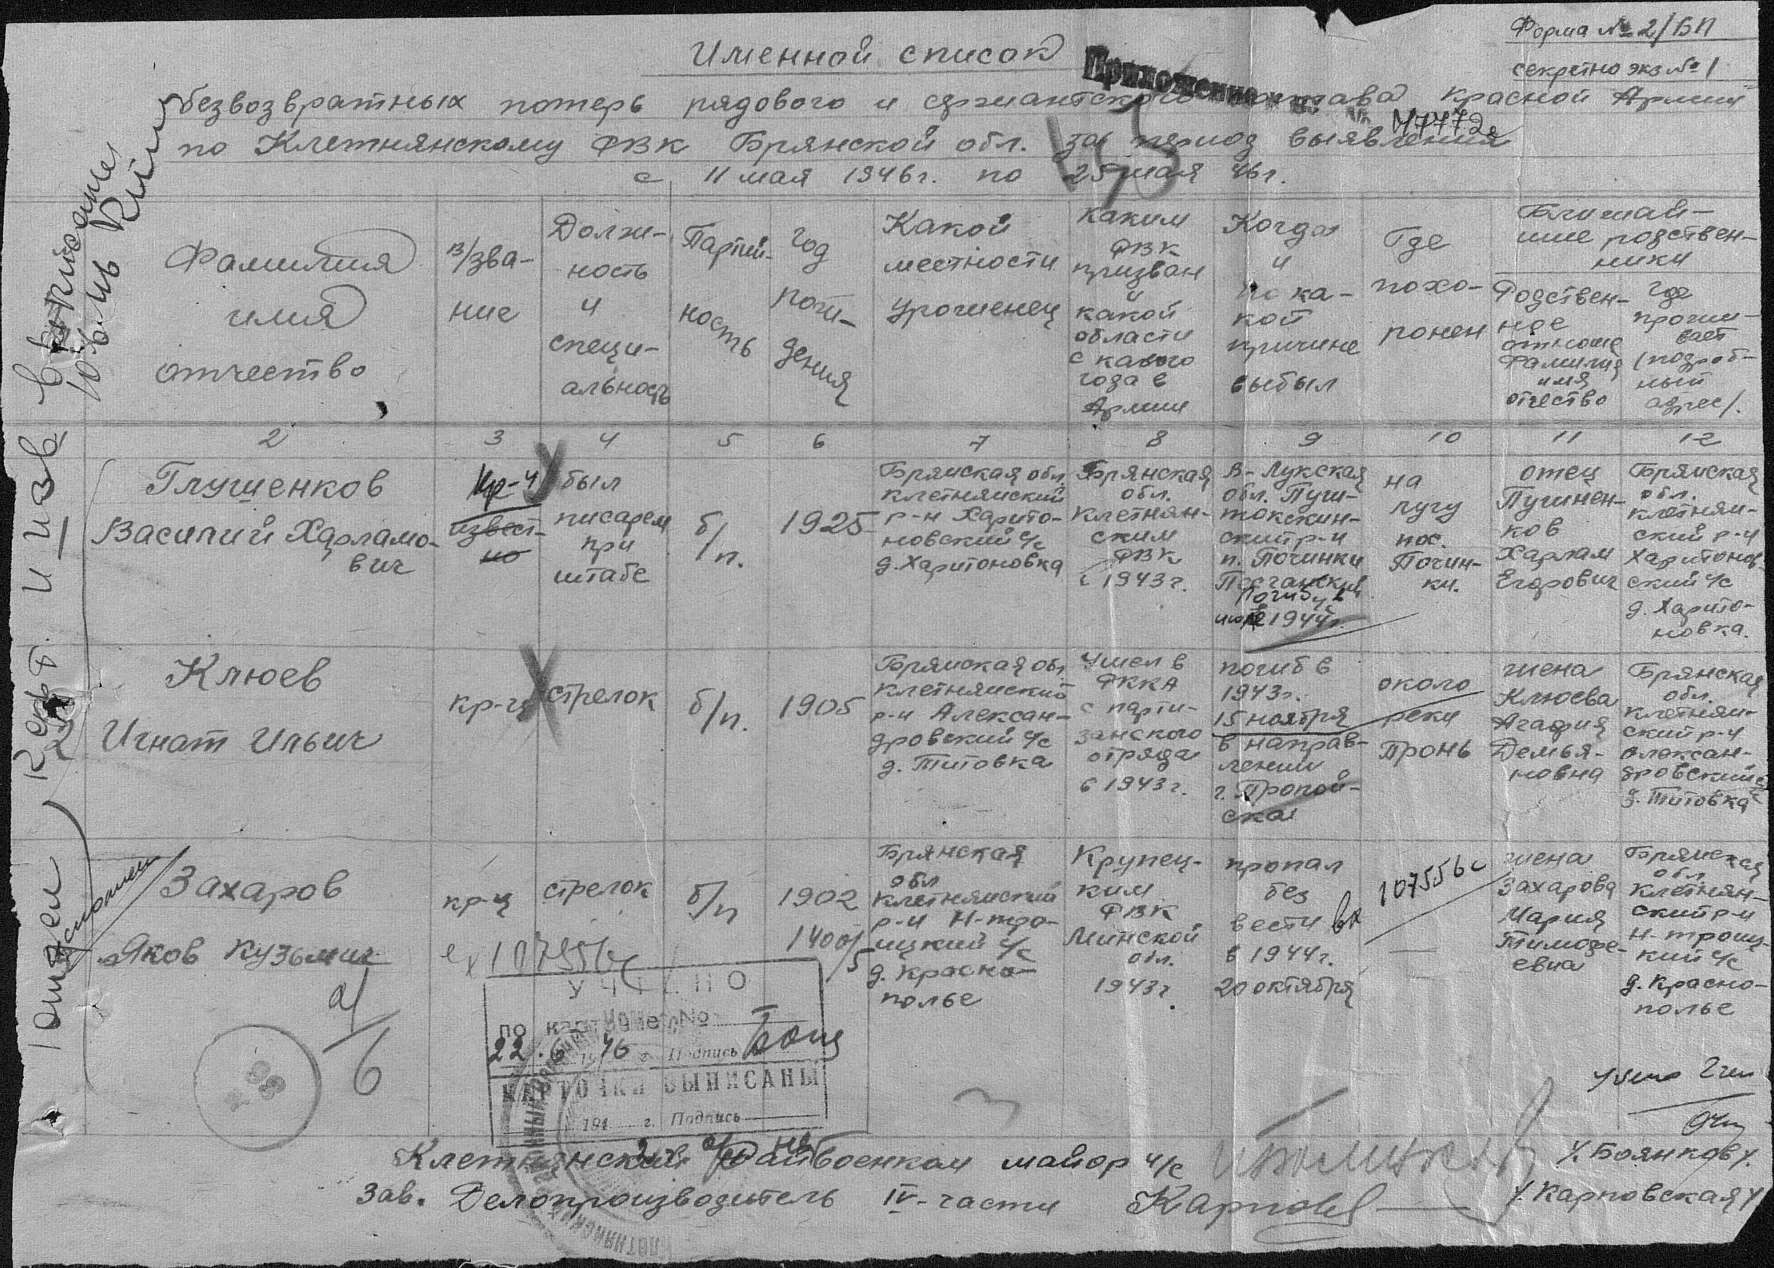 Форма № 2/БП
секретно экз № 1
Именной список
Приложение к вх. №
безвозвратных потерь рядового и сержантского состава Красной Армии
47772с
по Клетнянскому РВК Брянской обл. за период выявления
с 11 мая 1946г. по 25 мая 46г.
Фамилия
имя
отчество
в/зва-
ние
Долж-
ность
и
специ-
альность
Партий-
ность
год
рож-
дения
Какой
местности
уроженец
каким
РВК
призван
и
какой
области
с какого
года в
Армии
Когда
и
по ка-
кой
причине
выбыл
Где
похо-
ронен
Ближай-
шие родствен-
ники
Родствен-
ное
отноше
Фамилия
имя
отчество
где
прожи-
вает
(подроб-
ный
адрес).
2 3 4 5 6 7 8 9 10 11 12
Глушенков
Василий Харламо-
вич
кр-ц
извест-
но
был
писарем
при
штабе
б/п.
1925
Брянская обл.
Клетнянский
р-н Харито-
новский с/с
д. Харитоновка
Брянская
обл.
Клетнян-
ским
РВК
с 1943г.
В-Лукская
обл. Пуш-
ский р-н
п. Починки
погиб в
1944г.
на
лугу
пос.
Почин-
ки.
отец
ков
Харлам
Егорович
Брянская
обл.
Клетнян-
ский р-н
Харитонов-
ский с/с
д. Харито-
новка.
Клюев
Игнат Ильич
кр-ц
стрелок
б/п.
1905
Брянская обл.
Клетнянский
р-н Алексан-
дровский с/с
д. Титовка
Ушел в
РККА
с парти-
занского
отряда
в 1943г.
погиб в
1943г.
15 ноября
в направ-
лении
г. Пропой-
ска
около
реки
Пронь
жена
Клюева
Агафия
Демья-
новна
Брянская
обл.
Клетнян-
ский р-н
Алексан-
дровский с/с
д. Титовка
Захаров
Яков Кузьмич
кр-ц
стрелок
б/п
1902
1400/5
Брянская
обл
Клетнянский
р-н Н-тро-
ицкий с/с
д. Красно-
полье
Крупец-
ким
РВК
Минской
обл.
1943г.
пропал
без
вести
в 1944г.
20 октября
вх 107556с
—
жена
Захарова
Мария
Тимофе-
евна
Брянская
обл.
Клетнян-
ский р-н
Н-троиц-
кий с/с
д. Красно-
полье
вх 107556с
УЧТЕНО
по картотеке №
22.6 1946 г. Подпись
КАРТОЧКИ ВЫПИСАНЫ
194 г. Подпись
Клетнянский Райвоенком майор ч/с
/Боянков/.
Зав. Делопроизводитель IV-части
/Карповская/